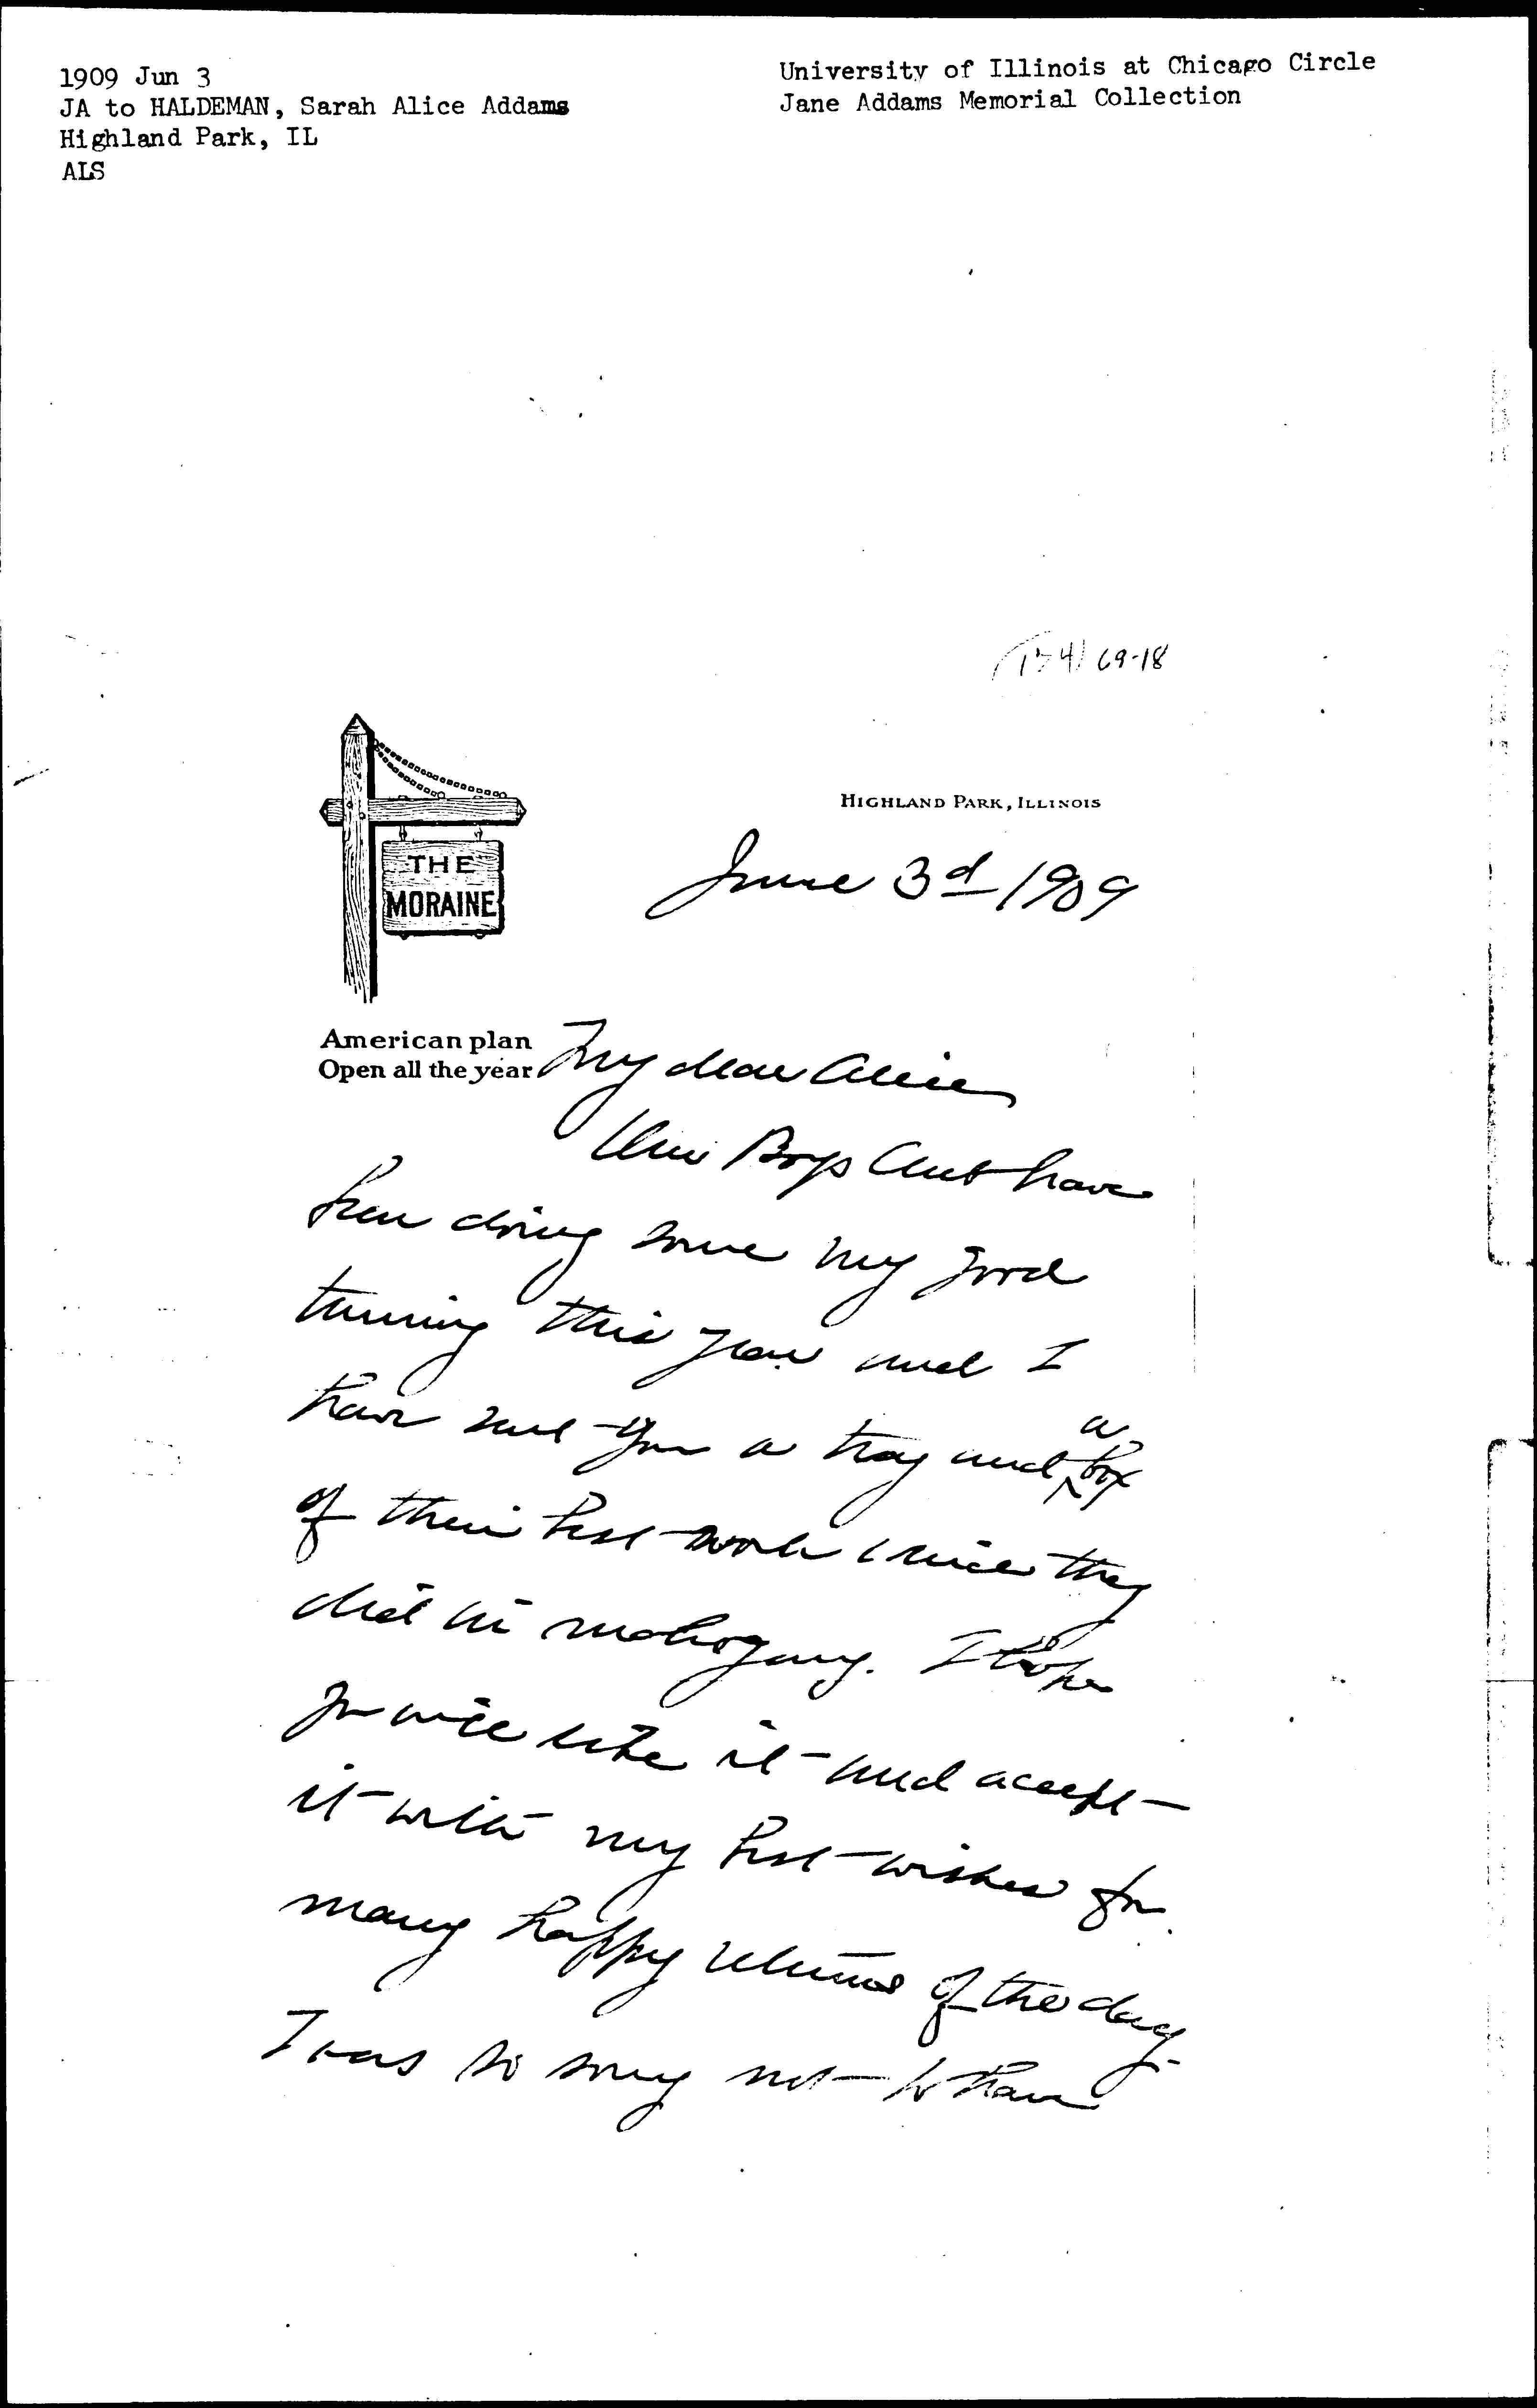 1909 Jun 3
JA to HALDEMAN, Sarah Alice Addams
Highland Park, IL
ALS
University of Illinois at Chicago Circle
Jane Addams Memorial Collection
69-18
THE
MORAINE
HIGHLAND PARK, ILLINOIS
June 3d 1909
American plan
Open all the year
My dear Alice
Our Boys Club have
been doing some very good
turning this year and I
have sent you a tray and a box
of their best work which they
did in mahogany. I hope
you will like it and accept
it with my best wishes for
many happy returns of the day.
I was so sorry not to have